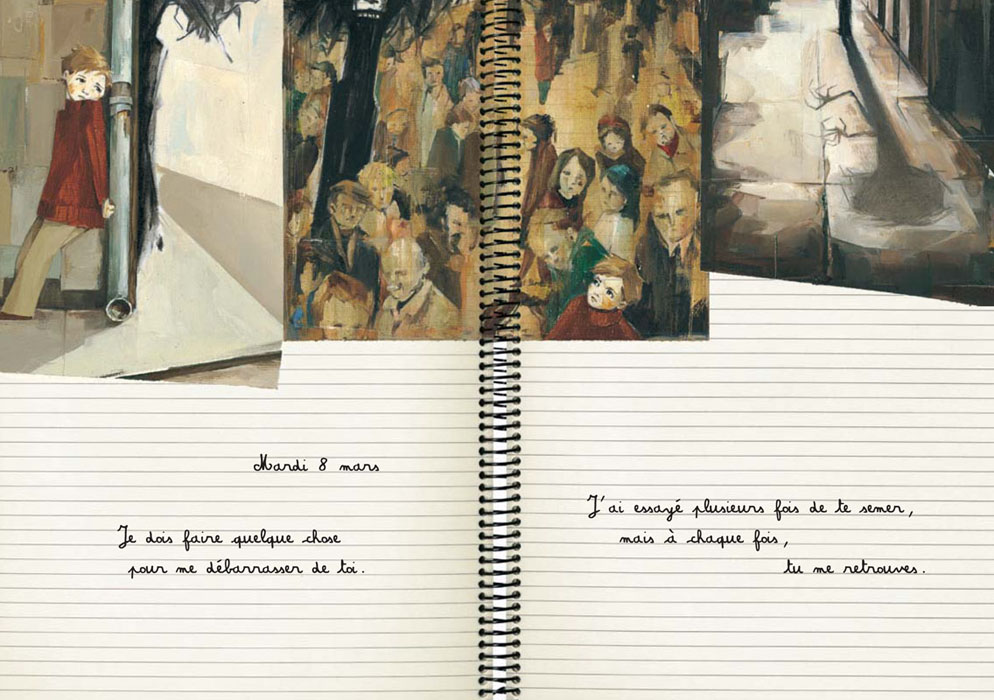 Mardi 8 mars
Je dois faire quelque chose
pour me débarrasser de toi.
J'ai essayé plusieurs fois de te semer,
mais à chaque fois,
tu me retrouves.